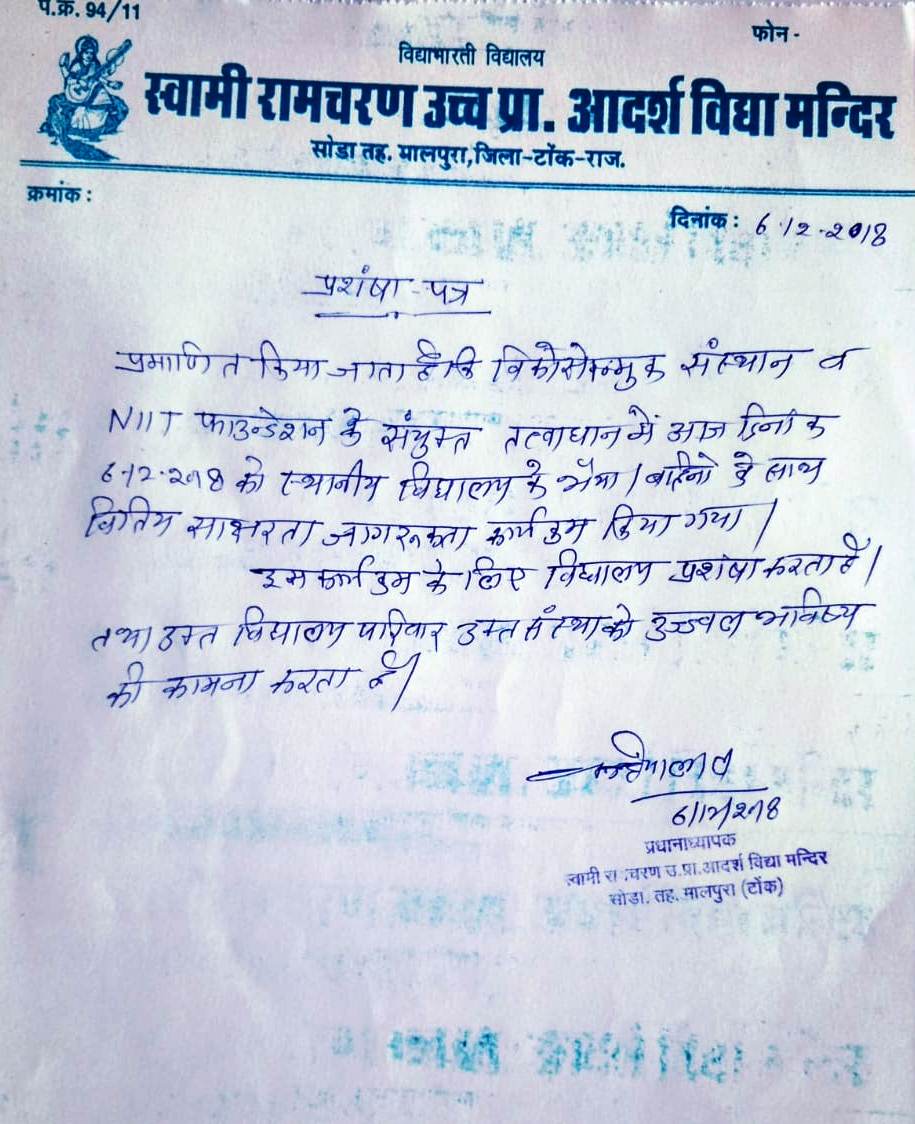 प.क्र. 94/11
फोन -
विद्याभारती विद्यालय
स्वामी रामचरण उच्च प्रा. आदर्श विद्या मन्दिर
सोडा तह. मालपुरा,जिला-टोंक-राज.
क्रमांक :
दिनांक : 6.12.2018
प्रशंषा-पत्र
प्रमाणित किया जाता है कि विकासोन्मुक संस्थान व
NIIT फाउन्डेशन के संयुक्त तत्वाधान में आज दिनांक
6.12.2018 को स्थानीय विद्यालय के भैया/बहिनो के साथ
वितिय साक्षरता जागरूकता कार्यक्रम किया गया।
इस कार्यक्रम के लिए विद्यालय प्रशंषा करता है।
तथा उक्त विद्यालय परिवार उक्त संस्था को उज्जवल भविष्य
की कामना करता है।
6/12/2018
प्रधानाध्यापक
स्वामी रामचरण उ.प्रा.आदर्श विद्या मन्दिर
सोडा. तह. मालपुरा (टोंक)